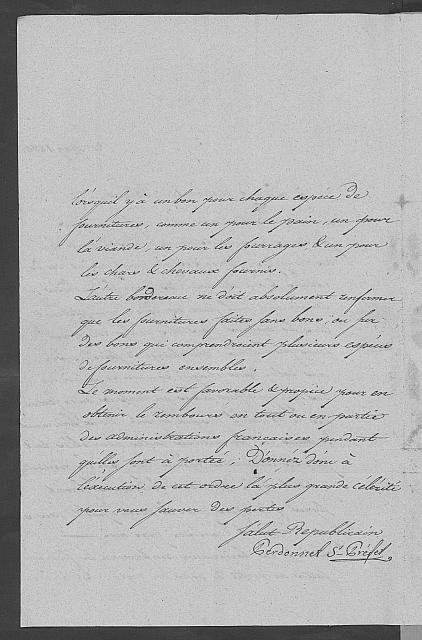 lorsquil y à un bon pour chaque espéce de
fournitures, comme un pour le pain, un pour
la viande, un pour les fourrages & un pour
les chars & chevaux fournis.
L'autre bordereau ne doit absolument renfermer
que les fournitures faites sans bons; ou sur
des bons qui comprendroient plusieurs espéces
de fournitures ensembles.
Le moment est favorable & propice pour en
obtenir le rembours en tout ou en partie
des administrations françaises pendant
qu'illes sont à portée, Donnéz donc à
l'éxécution de cet ordre la plus grande célérité
pour vous sauver des pertes
Salut Republicain
Perdonnet St. Préfet